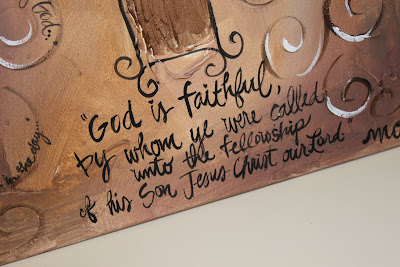 God..
"God is faithful,
by whom ye were called
unto the fellowship
of his Son Jesus Christ our Lord."